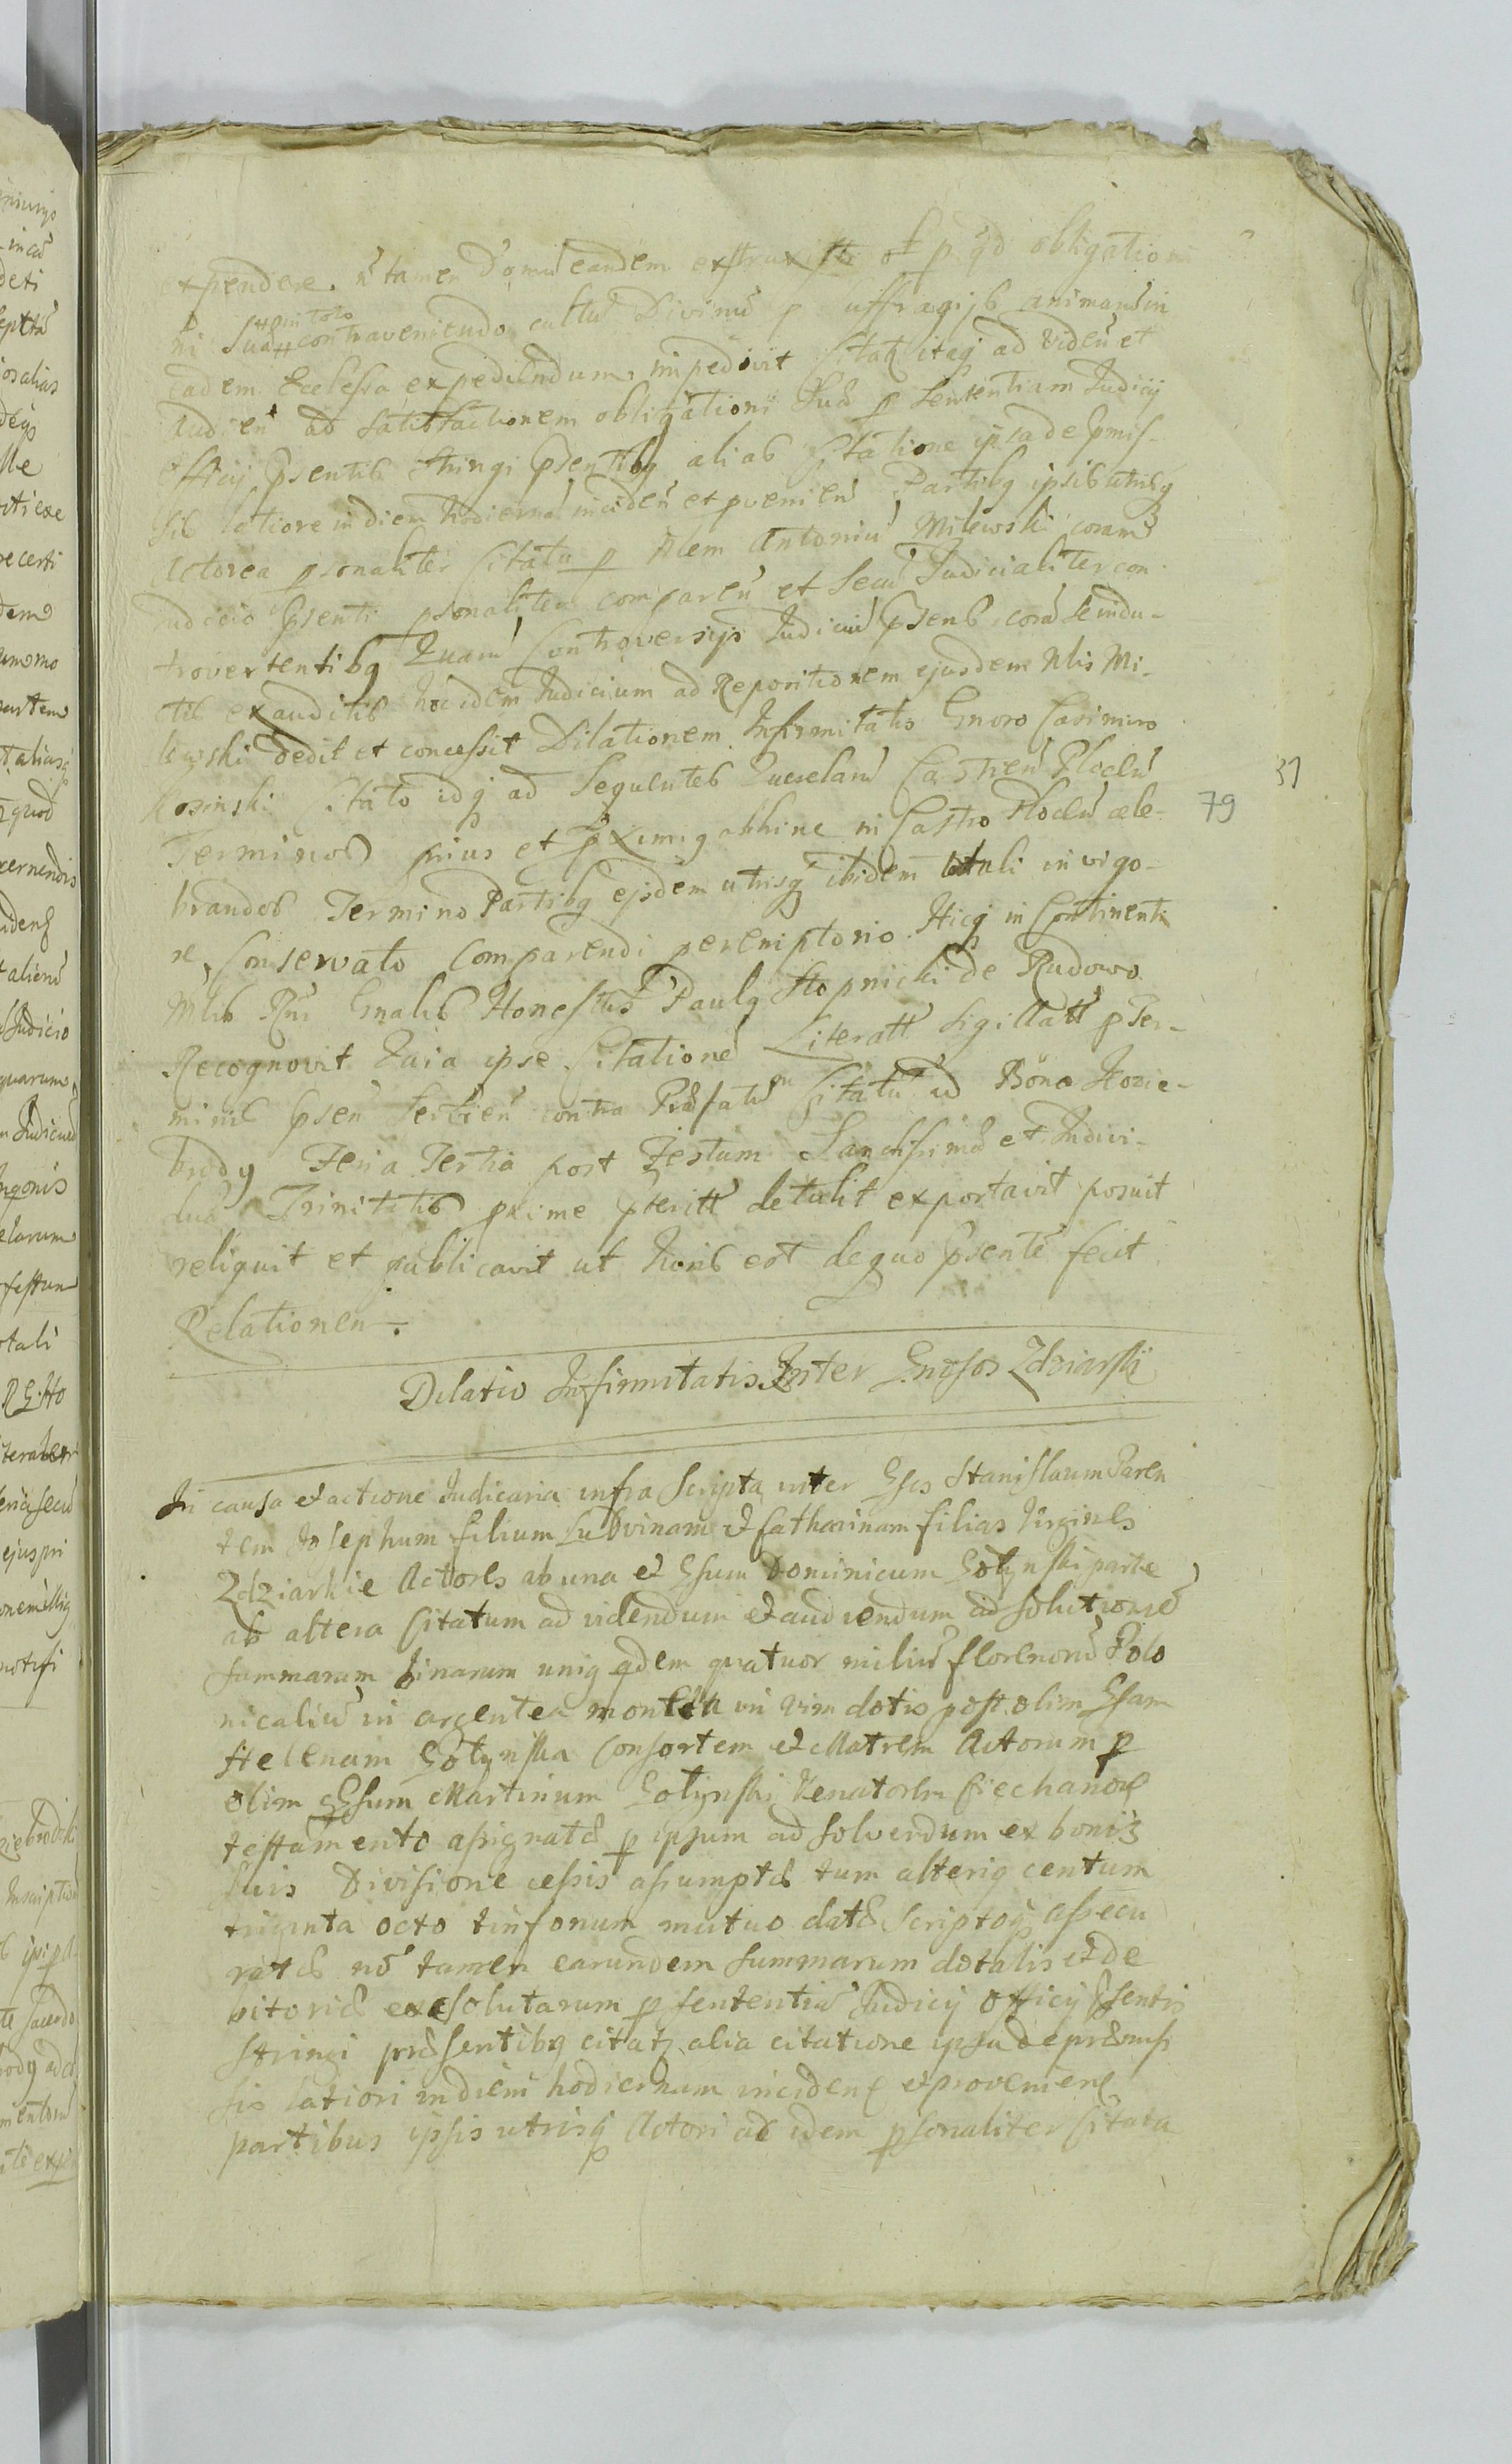 expendere. ñ tamen Domũ eandem exstruxisti et p qd obligationi
ni Suæ in toto contraveniendo cultũ Divinũ p suffragijs animarũ in
eadem Ecclesia expediendum impedivit Citatq itaq ad videñ et
Audieñ ad satisfactionem obligationi Suæ p Sententiam Judicij
Officij psentis stringi psentibq alias Citatione ipsa de pmis-
sis latiore in diem hodiernã incideñ et pvenieñ Partibq ipsis utrisq
Actorea psonaliter Citata p Nlem Antoniũ Milewski coram
Judicio psenti psonaliter compareñ et secũ Judicialiter con-
trovertentibq Quarũ Controversijs Judiciũ psens corã se indu-
ctis exauditis hocidem Judicium ad Repositionem ejusdem Nlis Mi-
lewski dedit et concessit Dilationem Infirmitatis Gnoso Casimiro
Kosinski Citato idq ad Sequentes Querelarũ Castreñ Ploceñ
Terminos prius et pximiq abhinc in Castro Ploceñ cele-
brandos Termino Partibq ejsdem utrisq ibidem totali in vigo-
re Conservato Comparendi peremptorio. Hicq in Continenti
Mlis Rni Gnalis Honestus Paulq Stopnicki de Rudowo
Recognovit Quia ipse Citationẽ Literatt Sigillatt p Ter-
minis psen Serвieñ contra Præfatũ Citatũ in Bonæ Howie-
brody Feria Tertia post Festum Sanctissimæ et Indivi-
duæ Trinitatis pxime pteritt detulit exportavit posuit
reliquit et publicavit ut Moris est de quo psentẽ fecit
Relationem.
Dilatio Infirmitatis Inter Gnosos Zdziarskie
In causa et actione Judicaria infra scripta inter Gsos Stanislaum Paren
tem Josephum filium Ludvinam et Catharinam filias Virgines
Zdziarskie Actores ab una et Gsum Dominicum Gołynski parte
ab altera Citatum ad videndum et audiendum ad solutionẽ
summarum binarum uniq qdem quatuor milliũ florenorũ Polo
nicaliũ in argentea moneta in vim dotis post olim Gsam
Helenam Gołynska Consortem et Matrem Actorum p
olim GGsum Martinum Gołynski Venatorem Ciechanoñ
testamento assignatæ p ipsum ad solvendum ex bonis
suis Divisione cessis assumptæ tum alteriq centum
triginta octo tinfonum mutuo datæ scriptoq assecu
ratæ nõ tamen earundem summarum dotalis et de
bitoriæ exsolutarum p sententiã Judicij Officij psentis
stringi præsentibq citatq alia citatione ipsa de præmis
sis latiori in diem hodiernum inciden et provenien
partibus ipsis utrisq Actori ab idem psonaliter Citata
79